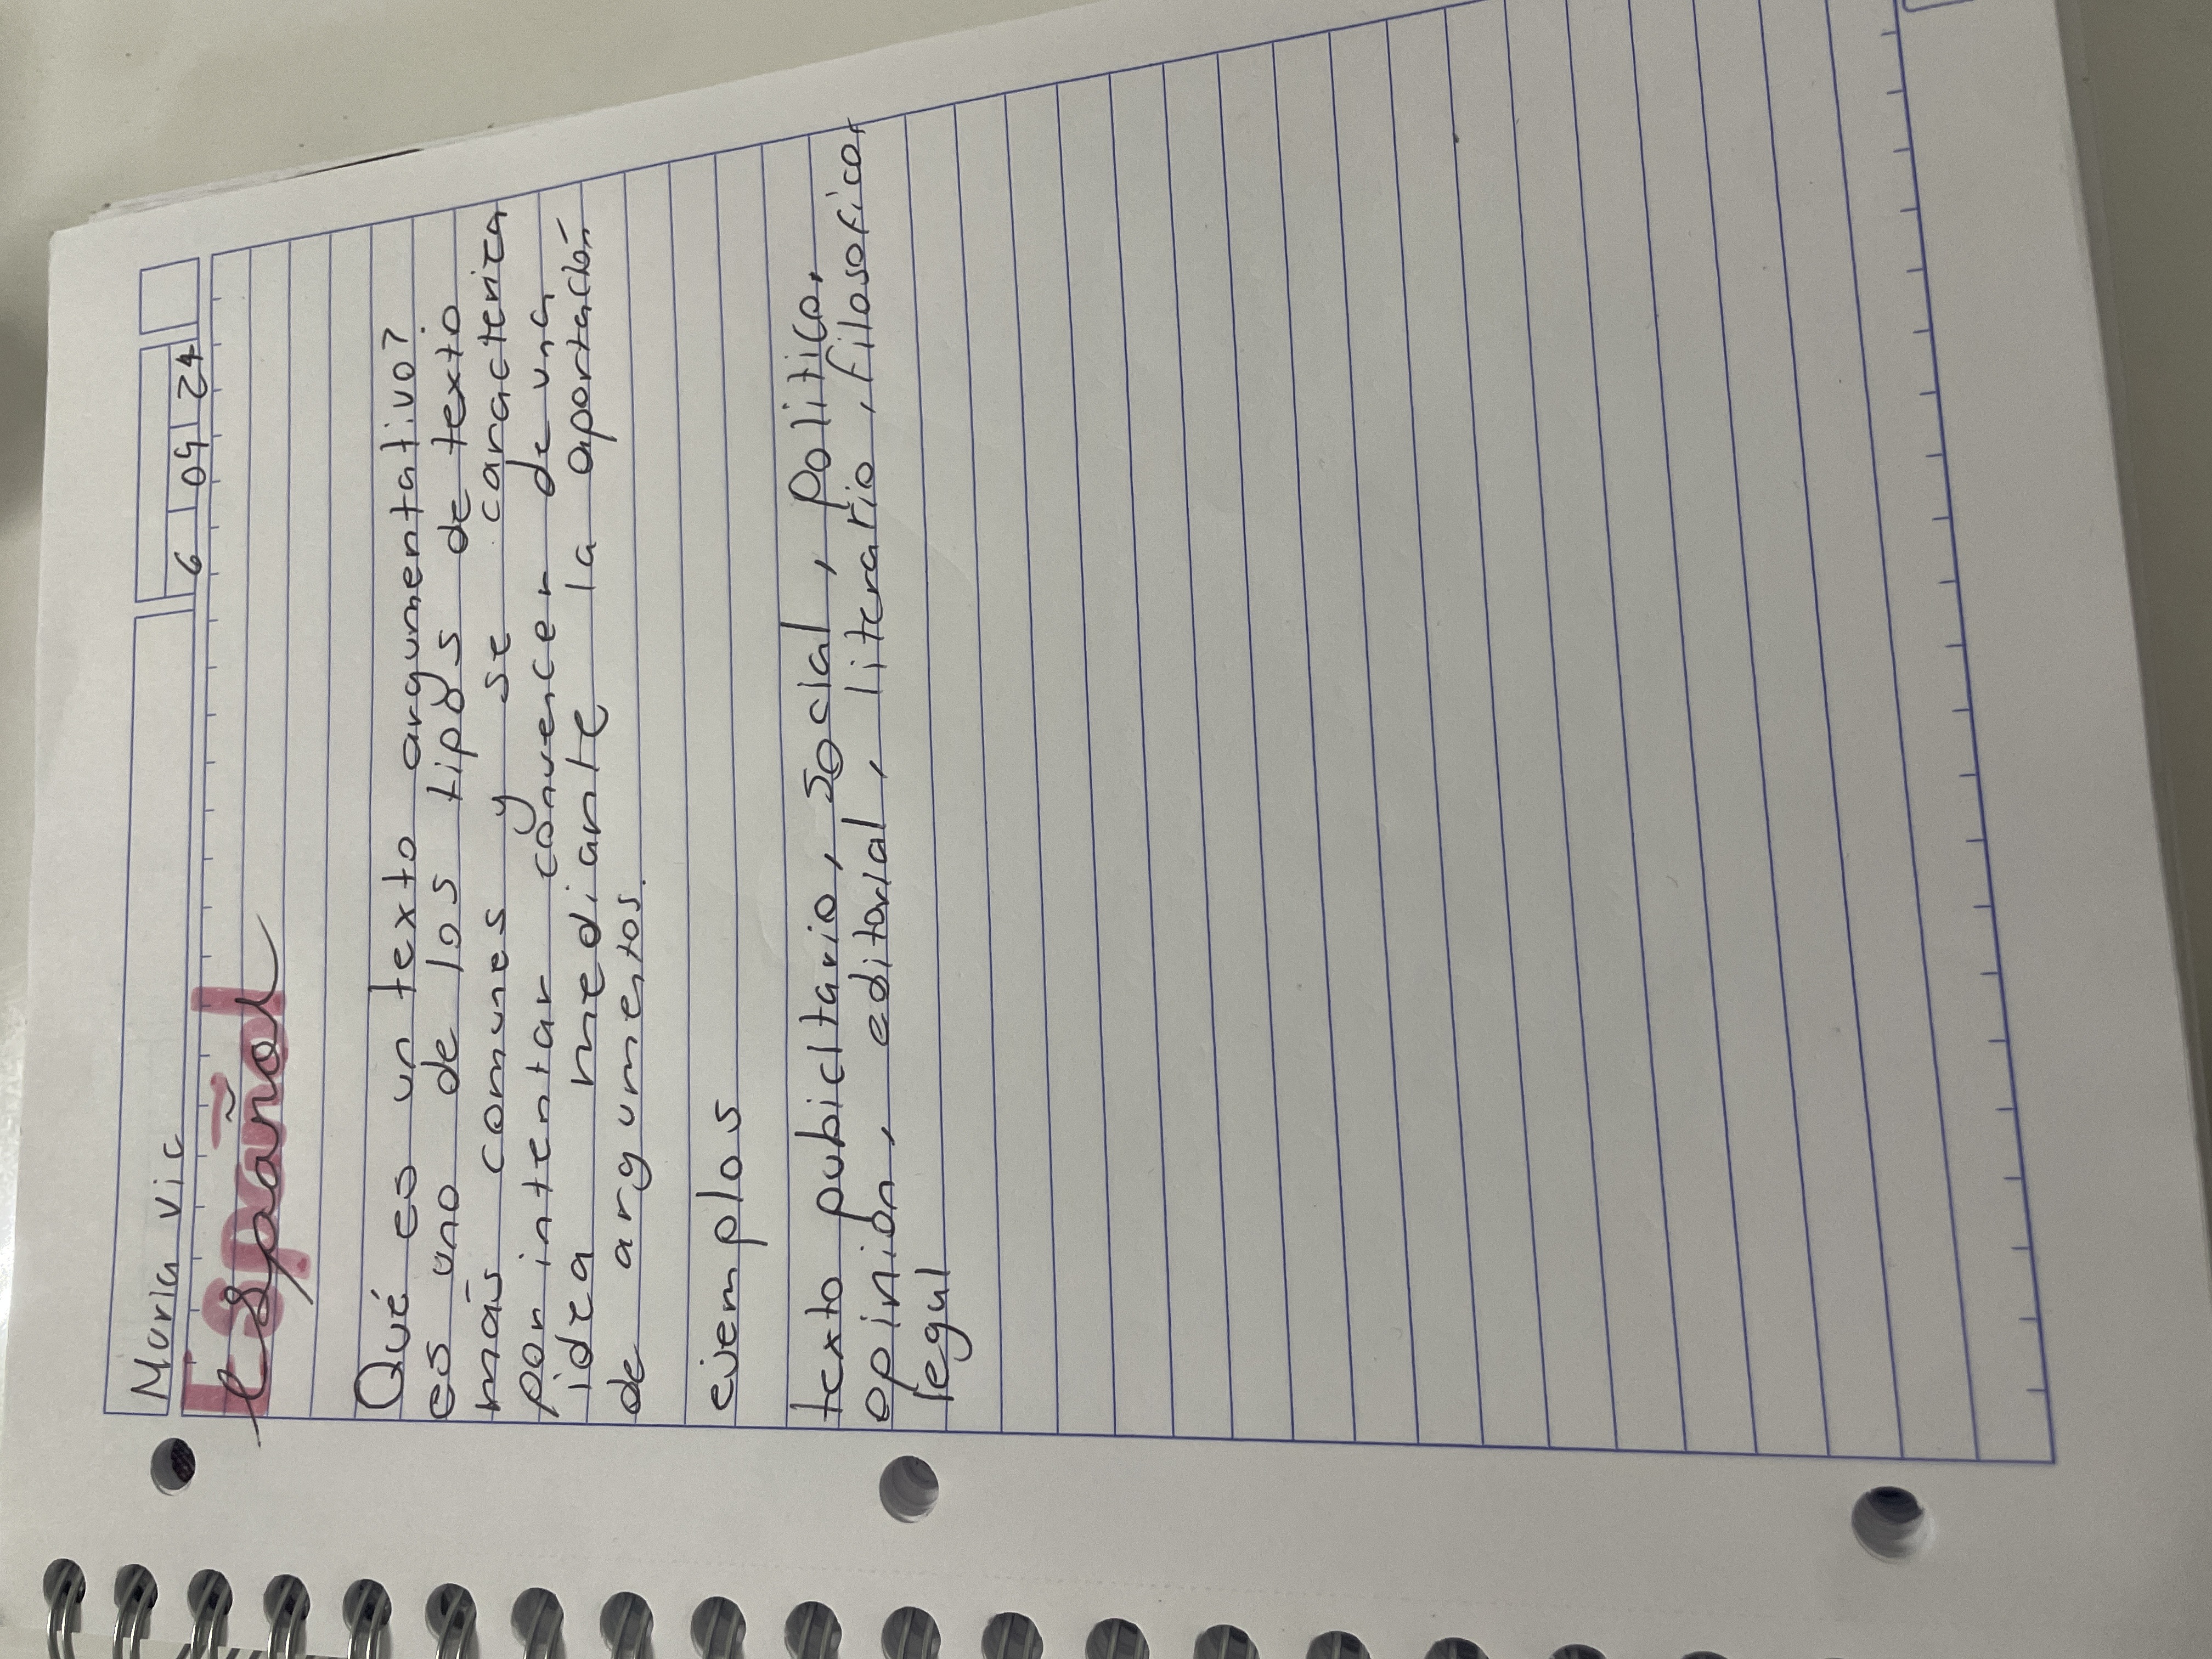 Maria Vic
6 04 24
Español
Qué es un texto argumentativo?
es uno de los tipos de texto
más comunes y se caracteriza
por intentar convencer de una
idea mediante la aportación
de argumentos.
ejemplos
texto pubicltario, Social, politico,
opinión, editorial, literario, filosofico,
legal